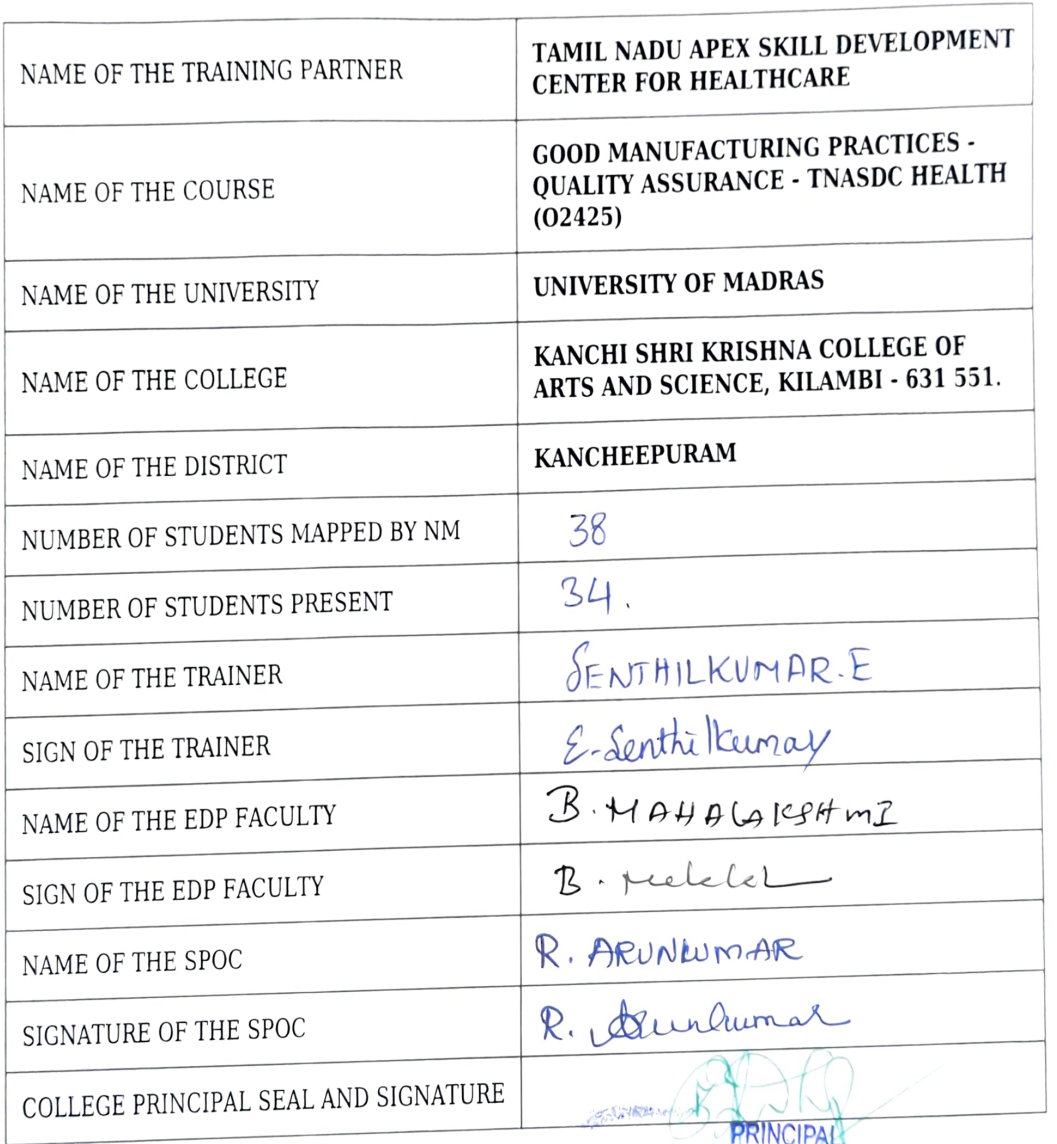 NAME OF THE TRAINING PARTNER
TAMIL NADU APEX SKILL DEVELOPMENT
CENTER FOR HEALTHCARE
NAME OF THE COURSE
GOOD MANUFACTURING PRACTICES -
QUALITY ASSURANCE - TNASDC HEALTH
(O2425)
NAME OF THE UNIVERSITY
UNIVERSITY OF MADRAS
NAME OF THE COLLEGE
KANCHI SHRI KRISHNA COLLEGE OF
ARTS AND SCIENCE, KILAMBI - 631 551.
NAME OF THE DISTRICT
KANCHEEPURAM
NUMBER OF STUDENTS MAPPED BY NM
38
NUMBER OF STUDENTS PRESENT
34.
NAME OF THE TRAINER
SENTHILKUMAR.E
SIGN OF THE TRAINER
E. Senthilkumar
NAME OF THE EDP FACULTY
B. MAHALAKSHMI
SIGN OF THE EDP FACULTY
B.
NAME OF THE SPOC
R. ARUNKUMAR
SIGNATURE OF THE SPOC
R. Arunkumar
COLLEGE PRINCIPAL SEAL AND SIGNATURE
PRINCIPAL